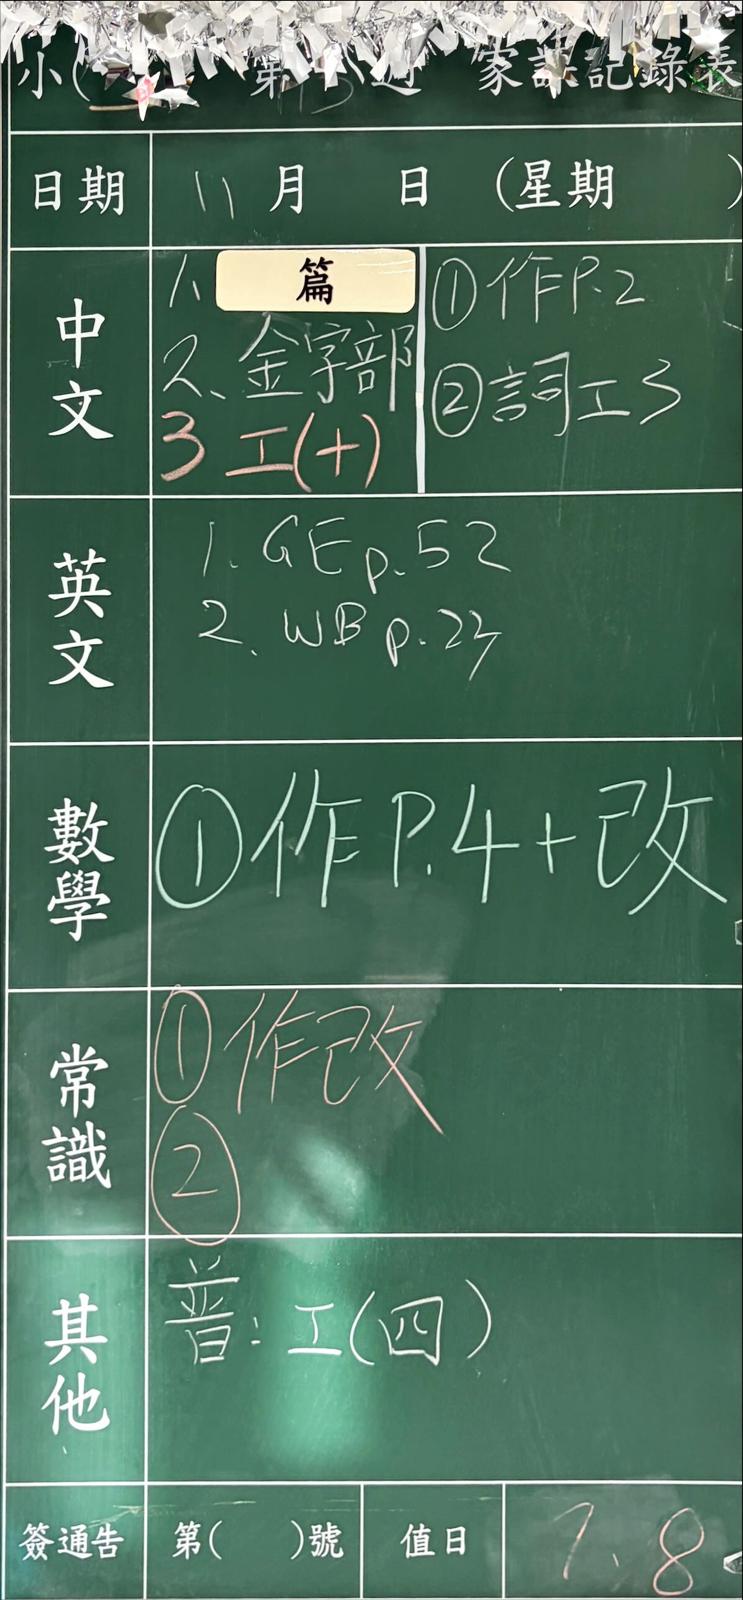 小( 第 週 家課記錄表
日期 11月 日 (星期 )
中文
1. 篇
2、金字部
3 工(十)
①作P.2
②詞工3
英文
1. GE p.52
2. WB p.23
數學
①作P.4+改
常識
①作改
②
其他
普:工(四)
簽通告 第( )號 值日 7、8